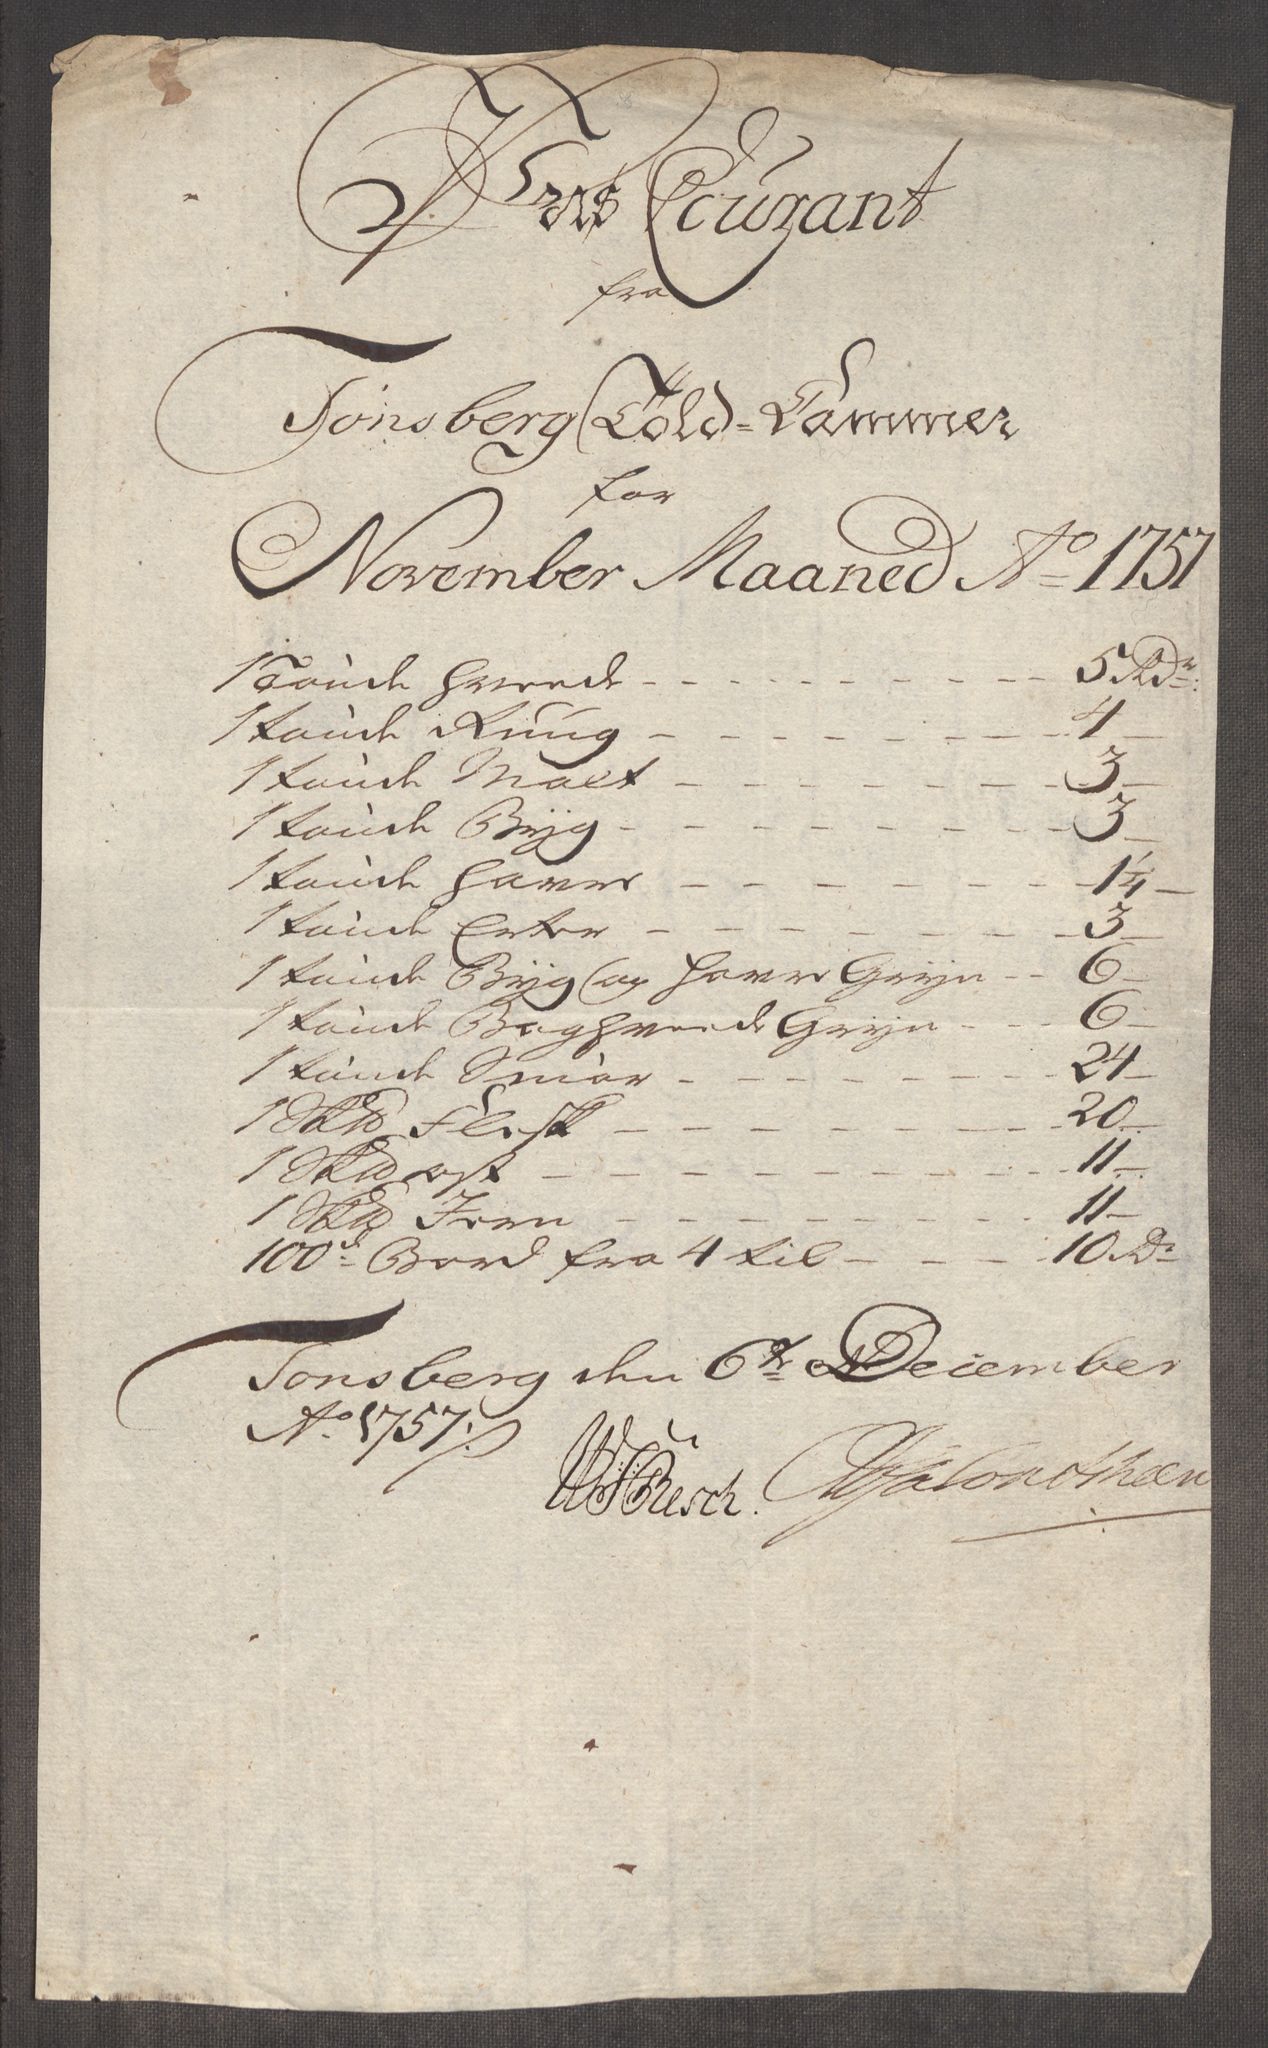 Priis Courant
fra
Tonsberg Told-Cammer
for
November Maaned Ao 1757
1 Tønde Hvede - - - 5 Rdr:
1 tønde Rúug - - - 4 -
1 tønde Malt - - - 3 -
1 tønde Byg - - - 3 -
1 tønde Havre - - - 1¼ -
1 tønde Erter - - - 3 -
1 tønde Byg og Havre Gryn - - 6 -
1 tønde Boghvede Gryn - - - 6 -
1 tønde Smør - - - 24 -
1 Skd Flesk - - - 20 -
1 Skd ost - - - 11 -
1 Skd Jern - - - 11 -
100d: Bord fra 4 til - - - 10 Dr
Tonsberg den 6te December
Ao 1757.
Resch.